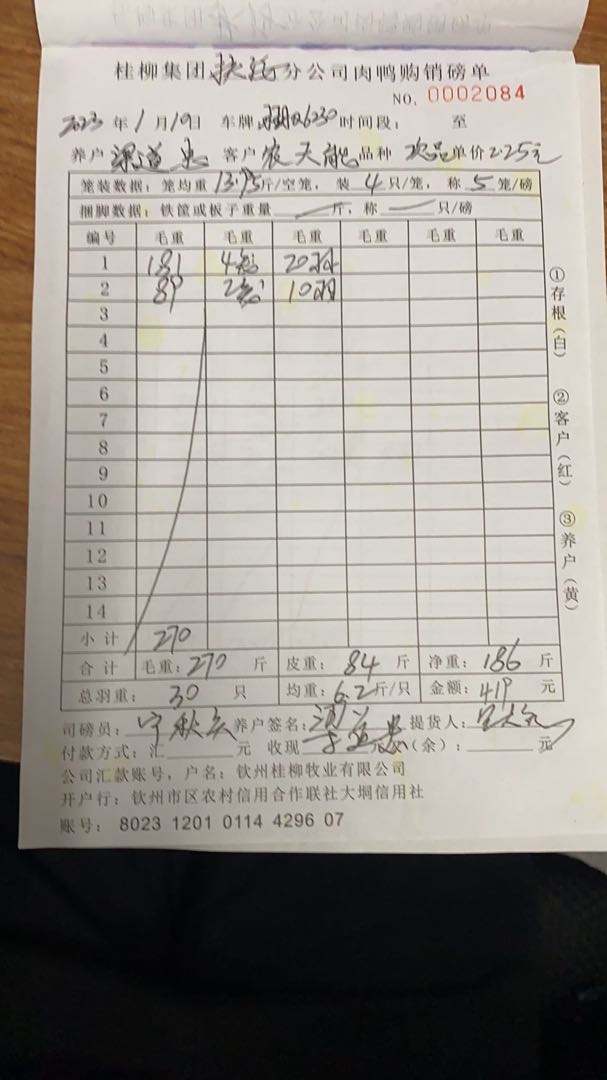 桂柳集团扶绥分公司肉鸭购销磅单
NO. 0002084
2023年1月19日 车牌 6230时间段： 至
养户 道忠 客户农天能品种 次品单价2.25元
笼装数据：笼均重13.95斤/空笼，装4只/笼，称5笼/磅
捆脚数据：铁筐或板子重量 斤，称 只/磅
编号 毛重 毛重 毛重 毛重 毛重 毛重
1 181 4 20羽
2 89 2 10羽
3
4
5
6
7
8
9
10
11
12
13
14
小计 270
合计 毛重：270 斤 皮重：84 斤 净重：186 斤
总羽重：30 只 均重：6.2斤/只 金额：419 元
司磅员：宁秋 养户签名： 提货人：
付款方式：汇 元 收现 （余）： 元
公司汇款账号，户名：钦州桂柳牧业有限公司
开户行：钦州市区农村信用合作联社大垌信用社
账号：8023 1201 0114 4296 07
①存根（白）
②客户（红）
③养户（黄）